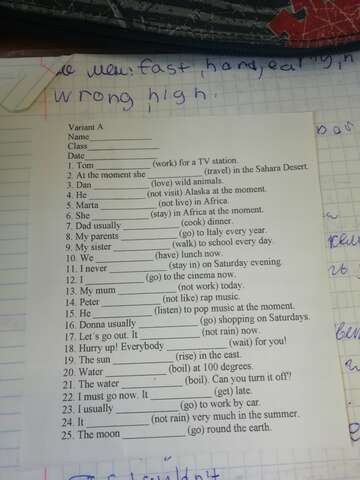 fast, hard, early, h
wrong, high.
Variant A
Name
Class
Date
1. Tom (work) for a TV station.
2. At the moment she (travel) in the Sahara Desert.
3. Dan (love) wild animals.
4. He (not visit) Alaska at the moment.
5. Marta (not live) in Africa.
6. She (stay) in Africa at the moment.
7. Dad usually (cook) dinner.
8. My parents (go) to Italy every year.
9. My sister (walk) to school every day.
10. We (have) lunch now.
11. I never (stay in) on Saturday evening.
12. I (go) to the cinema now.
13. My mum (not work) today.
14. Peter (not like) rap music.
15. He (listen) to pop music at the moment.
16. Donna usually (go) shopping on Saturdays.
17. Let's go out. It (not rain) now.
18. Hurry up! Everybody (wait) for you!
19. The sun (rise) in the east.
20. Water (boil) at 100 degrees.
21. The water (boil). Can you turn it off?
22. I must go now. It (get) late.
23. I usually (go) to work by car.
24. It (not rain) very much in the summer.
25. The moon (go) round the earth.